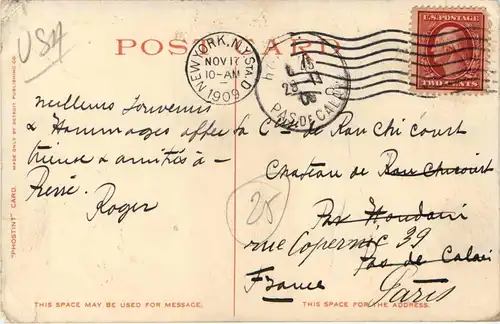 USA
POST CARD
NEW YORK, N.Y. STA. D
NOV 17
10-AM
1909
PAS DE CALAIS
U.S. POSTAGE
TWO CENTS
meilleurs souvenirs
& Hommages
& amitiés à
Pierre.
Roger
25
Csse de Ranchicourt
Chateau de Ranchicourt
Par Houdain
rue Copernic 39
Pas de Calais
Paris
France
MADE ONLY BY DETROIT PUBLISHING CO.
"PHOSTINT" CARD.
THIS SPACE MAY BE USED FOR MESSAGE.
THIS SPACE FOR THE ADDRESS.